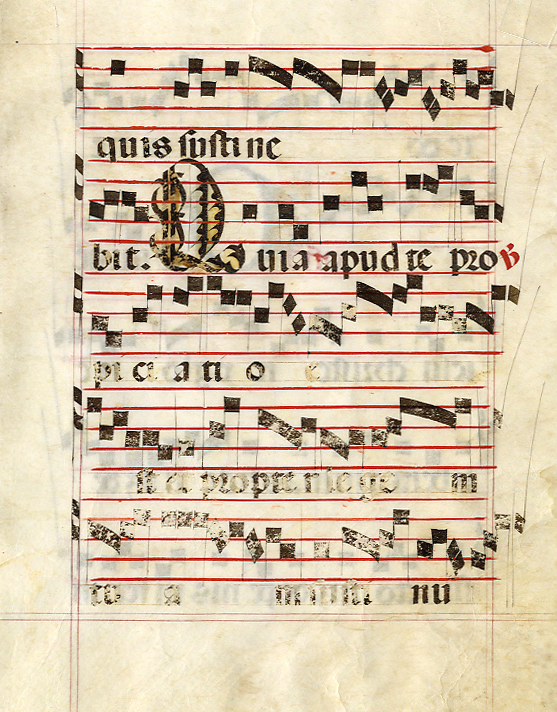 quis sustine
bit. Quia apud te pro ℣
pi ci a ti o
st et propter lege m
tu a m susti nu